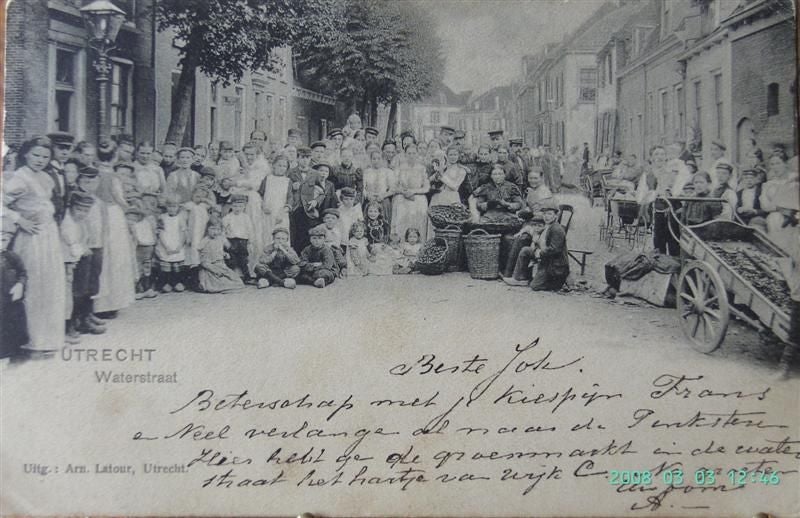 UTRECHT
Waterstraat
Beste Joh.
Beterschap met je Kiespijn Frans
e Neel verlange al naar de Pinkstere
Uitg.: Arn. Latour, Utrecht.
Hier hebt ge de groenmarkt in de water
straat het hartje van wijk C.
oom
A.
2008 03 03 12:46